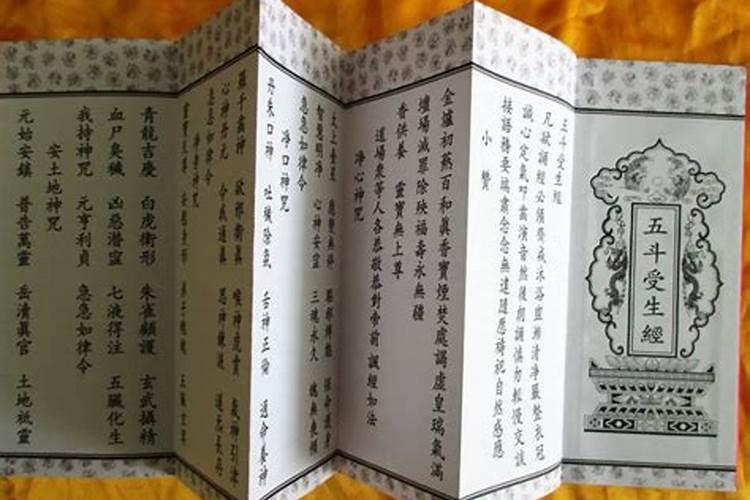 五斗受生經
五斗受生經
凡欲誦經必須齊戒沐浴
誠心定氣叩齒演音然後朗誦慎勿輕慢交談
接語務要端肅念念無違隨應禱祀自然感應
小贊
金爐初爇百和眞香寶煙焚處謁虛皇瑞氣滿
壇場滅罪除殃福壽永無疆
香供養 靈寶無上尊
道場衆等人各恭敬恭對帝前 誦經如法
淨心神咒
太上台星 應變無停
智慧明淨 心神安寍 三魂永久
急急如律令
淨口神咒
丹朱口神 吐穢除氛 舌神正倫 通命養神
羅千齒神 却邪衛眞 喉神虎賁 氣神引津
心神丹元 令我通眞 思神鍊液 道炁長存
急急如律令
淨身神咒
青龍吉慶 白虎衛形 朱雀顧護 玄武攝精
血尸臭穢 凶惡潛寍 七液得注 五臟化生
我持神咒 元亨利貞 急急如律令
安土地神咒
元始安鎮 普告萬靈 岳瀆眞官 土地祗靈